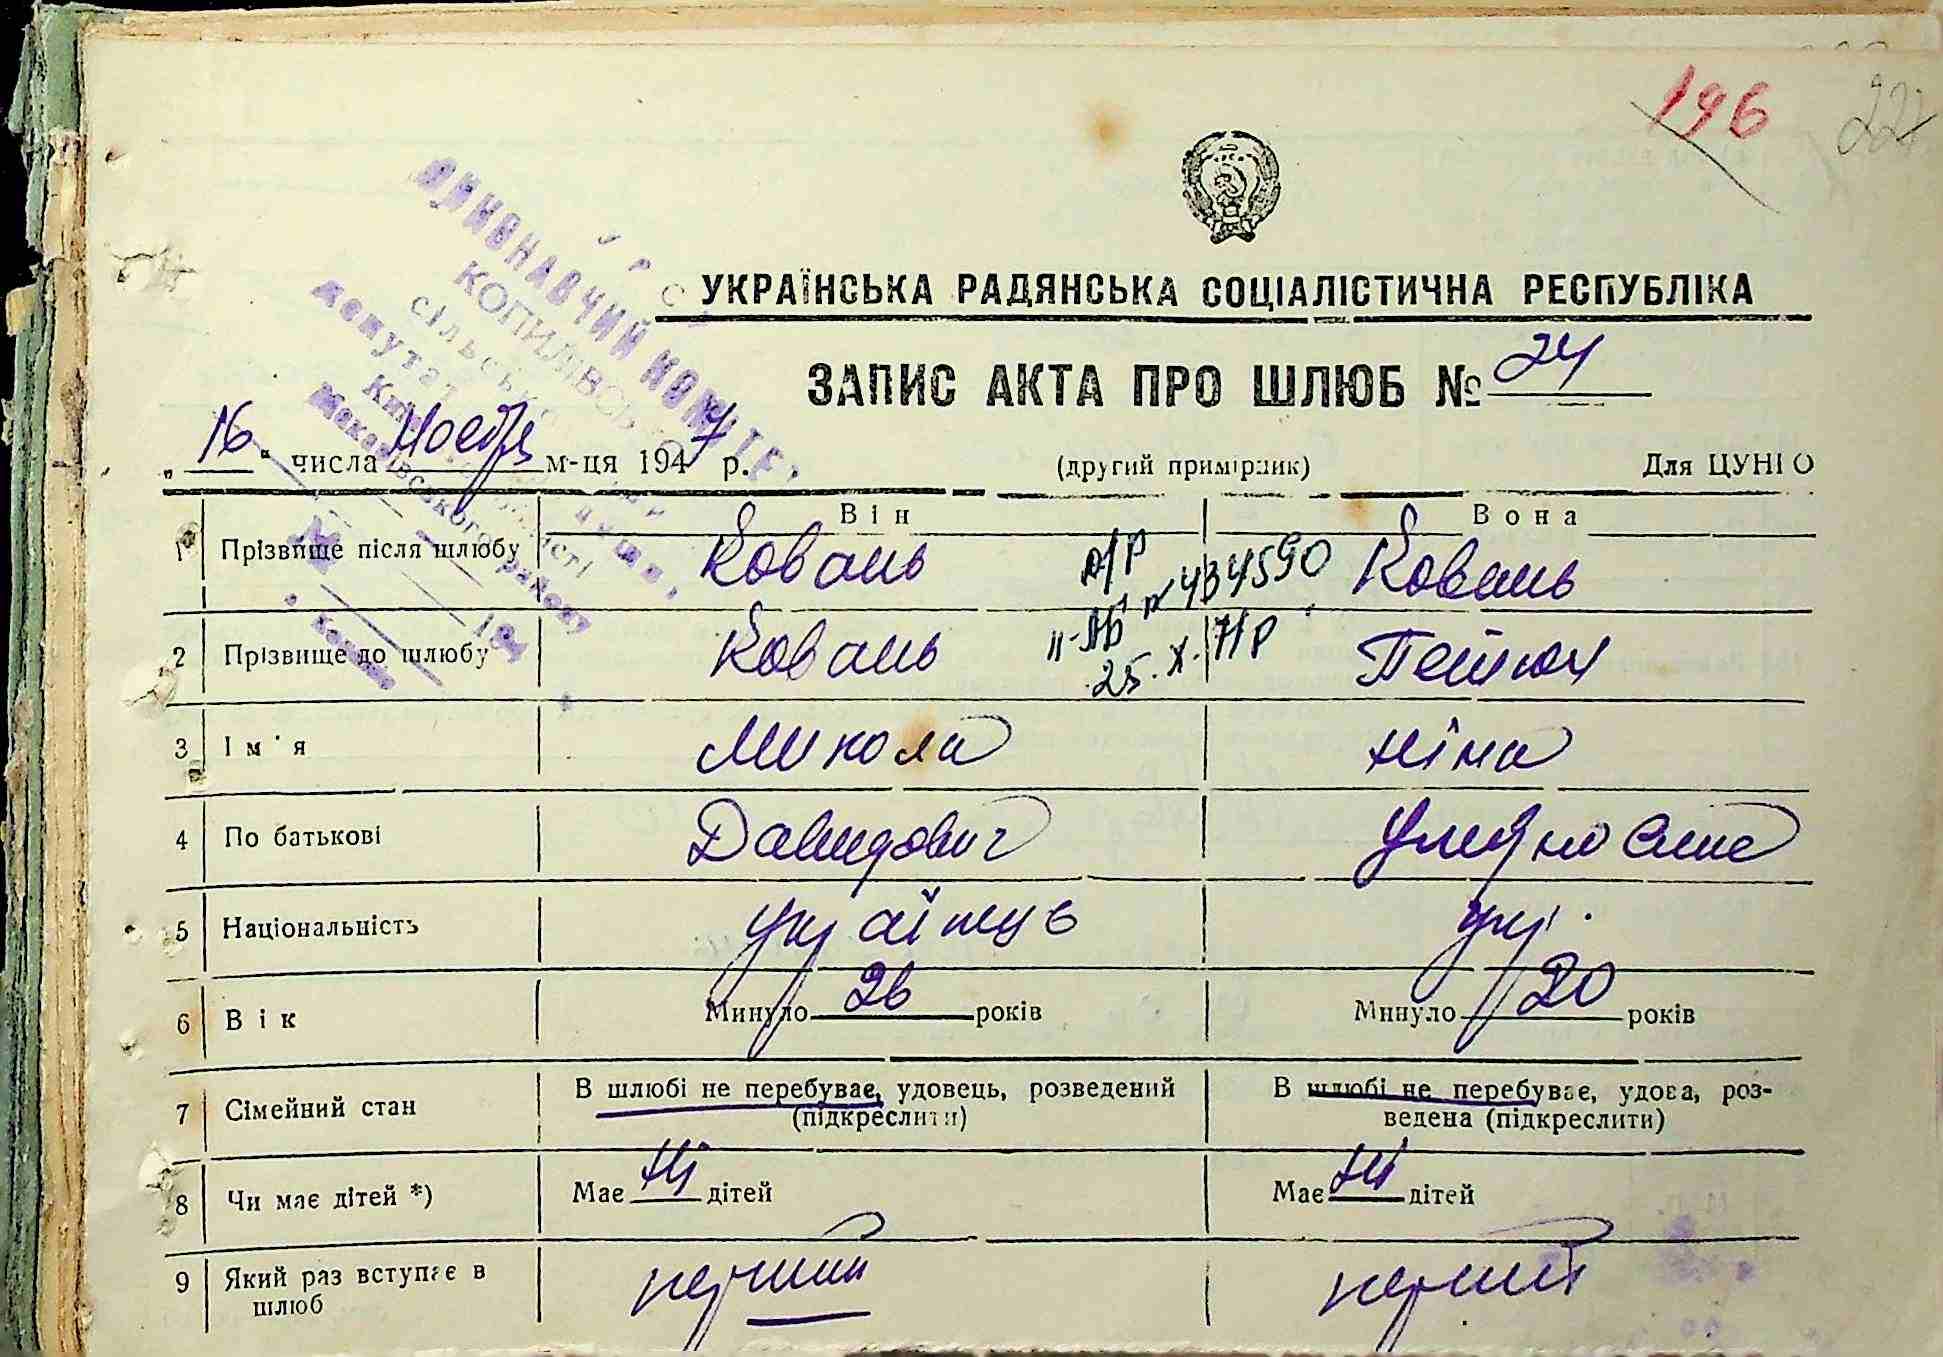 196
22
УКРАЇНСЬКА РАДЯНСЬКА СОЦІАЛІСТИЧНА РЕСПУБЛІКА
ЗАПИС АКТА ПРО ШЛЮБ № 24
ВИКОНАВЧИЙ КОМІТЕТ
КОПИЛІВСЬКОЇ
сільської
депутатів
Макарівського району
№
194
„16“ числа Ноебря м-ця 1947 р. (другий примірник) Для ЦУНГО
Він Вона
1 Прізвище після шлюбу Ковань Ковань
434590
2 Прізвище до шлюбу Ковань
25. X.
3 Ім'я Микола Ніна
4 По батькові Давидович
5 Національність українець укр.
6 Вік Минуло 26 років Минуло 20 років
7 Сімейний стан В шлюбі не перебуває, удовець, розведений (підкреслити) В шлюбі не перебуває, удова, роз-
ведена (підкреслити)
8 Чи має дітей *) Має ні дітей Має ні дітей
9 Який раз вступає в шлюб перший перший